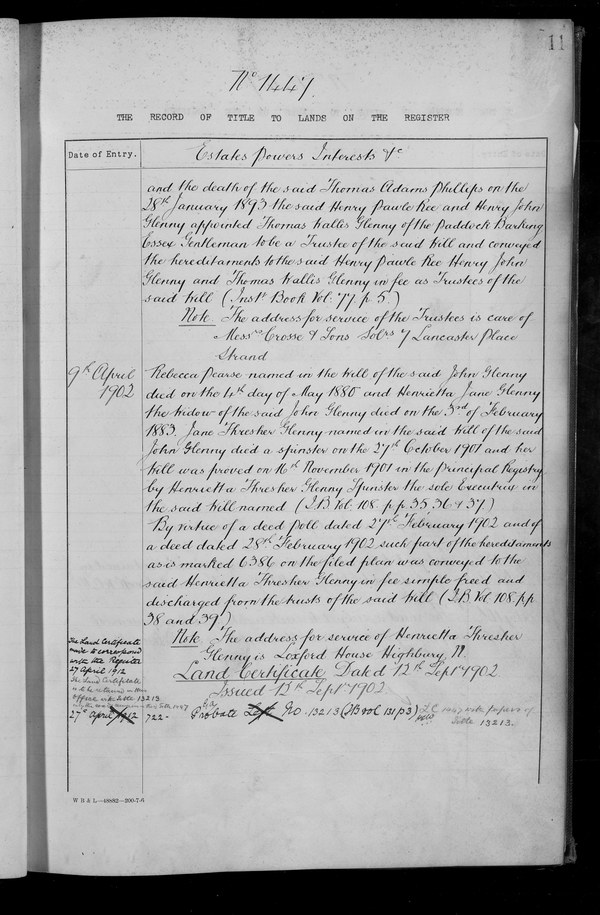 11
No 1447
THE RECORD OF TITLE TO LANDS ON THE REGISTER
Date of Entry.
Estates Powers Interests &c
and the death of the said Thomas Adams Phillips on the
28th January 1893 the said Henry Pawle Ree and Henry John
Glenny appointed Thomas Wallis Glenny of the Paddock Barking
Essex Gentleman to be a Trustee of the said Will and conveyed
the hereditaments to the said Henry Pawle Ree Henry John
Glenny and Thomas Wallis Glenny in fee as Trustees of the
said Will (Inst. Book Vol. 77 p 5)
Note. The address for service of the Trustees is care of
Messrs Crosse & Sons Solrs 7 Lancaster Place
Strand
9th April
1902
Rebecca Pearse named in the Will of the said John Glenny
died on the 4th day of May 1880 and Henrietta Jane Glenny
the Widow of the said John Glenny died on the 3rd of February
1883. Jane Thresher Glenny named in the said Will of the said
John Glenny died a spinster on the 27th October 1901 and her
Will was proved on 16th November 1901 in the Principal Registry
by Henrietta Thresher Glenny Spinster the sole Executrix in
the said Will named (I.B Vol. 108. p.p. 35, 36 & 37)
By virtue of a deed poll dated 27th February 1902 and of
a deed dated 28th February 1902 such part of the hereditaments
as is marked 6386 on the filed plan was conveyed to the
said Henrietta Thresher Glenny in fee simple freed and
discharged from the trusts of the said Will (I.B. Vol 108 p.p.
38 and 39)
Note The address for service of Henrietta Thresher
Glenny is Loxford House Highbury, N.
Land Certificate Dated 12th Sept 1902
Issued 12th Sept 1902
The Land Certificate
made to correspond
with the Register
27 April 1912
The Land Certificate
to be retained in this
office with Title 13213
27th April 1912 722-
Probate Left No. 13213 (IB vol 131 p3)
L.C. with papers of
Title 13213.
W B & L—48882—200-7-5